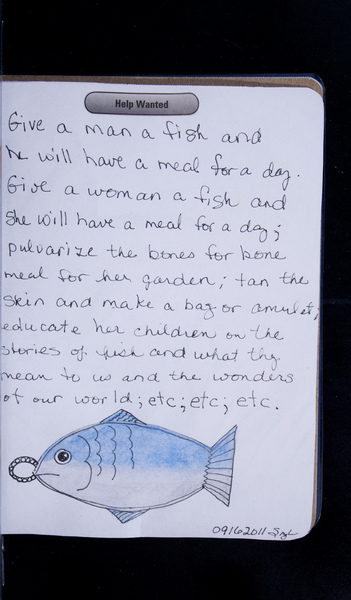 Help Wanted
Give a man a fish and
he will have a meal for a day.
Give a woman a fish and
she will have a meal for a day;
pulvarize the bones for bone
meal for her garden; tan the
skin and make a bag or amulet;
educate her children on the
stories of fish and what they
mean to us and the wonders
of our world; etc; etc; etc.
09162011